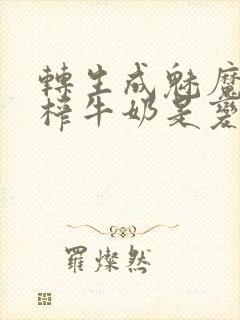 轉生成魅魔
榨牛奶是愛
羅燦然